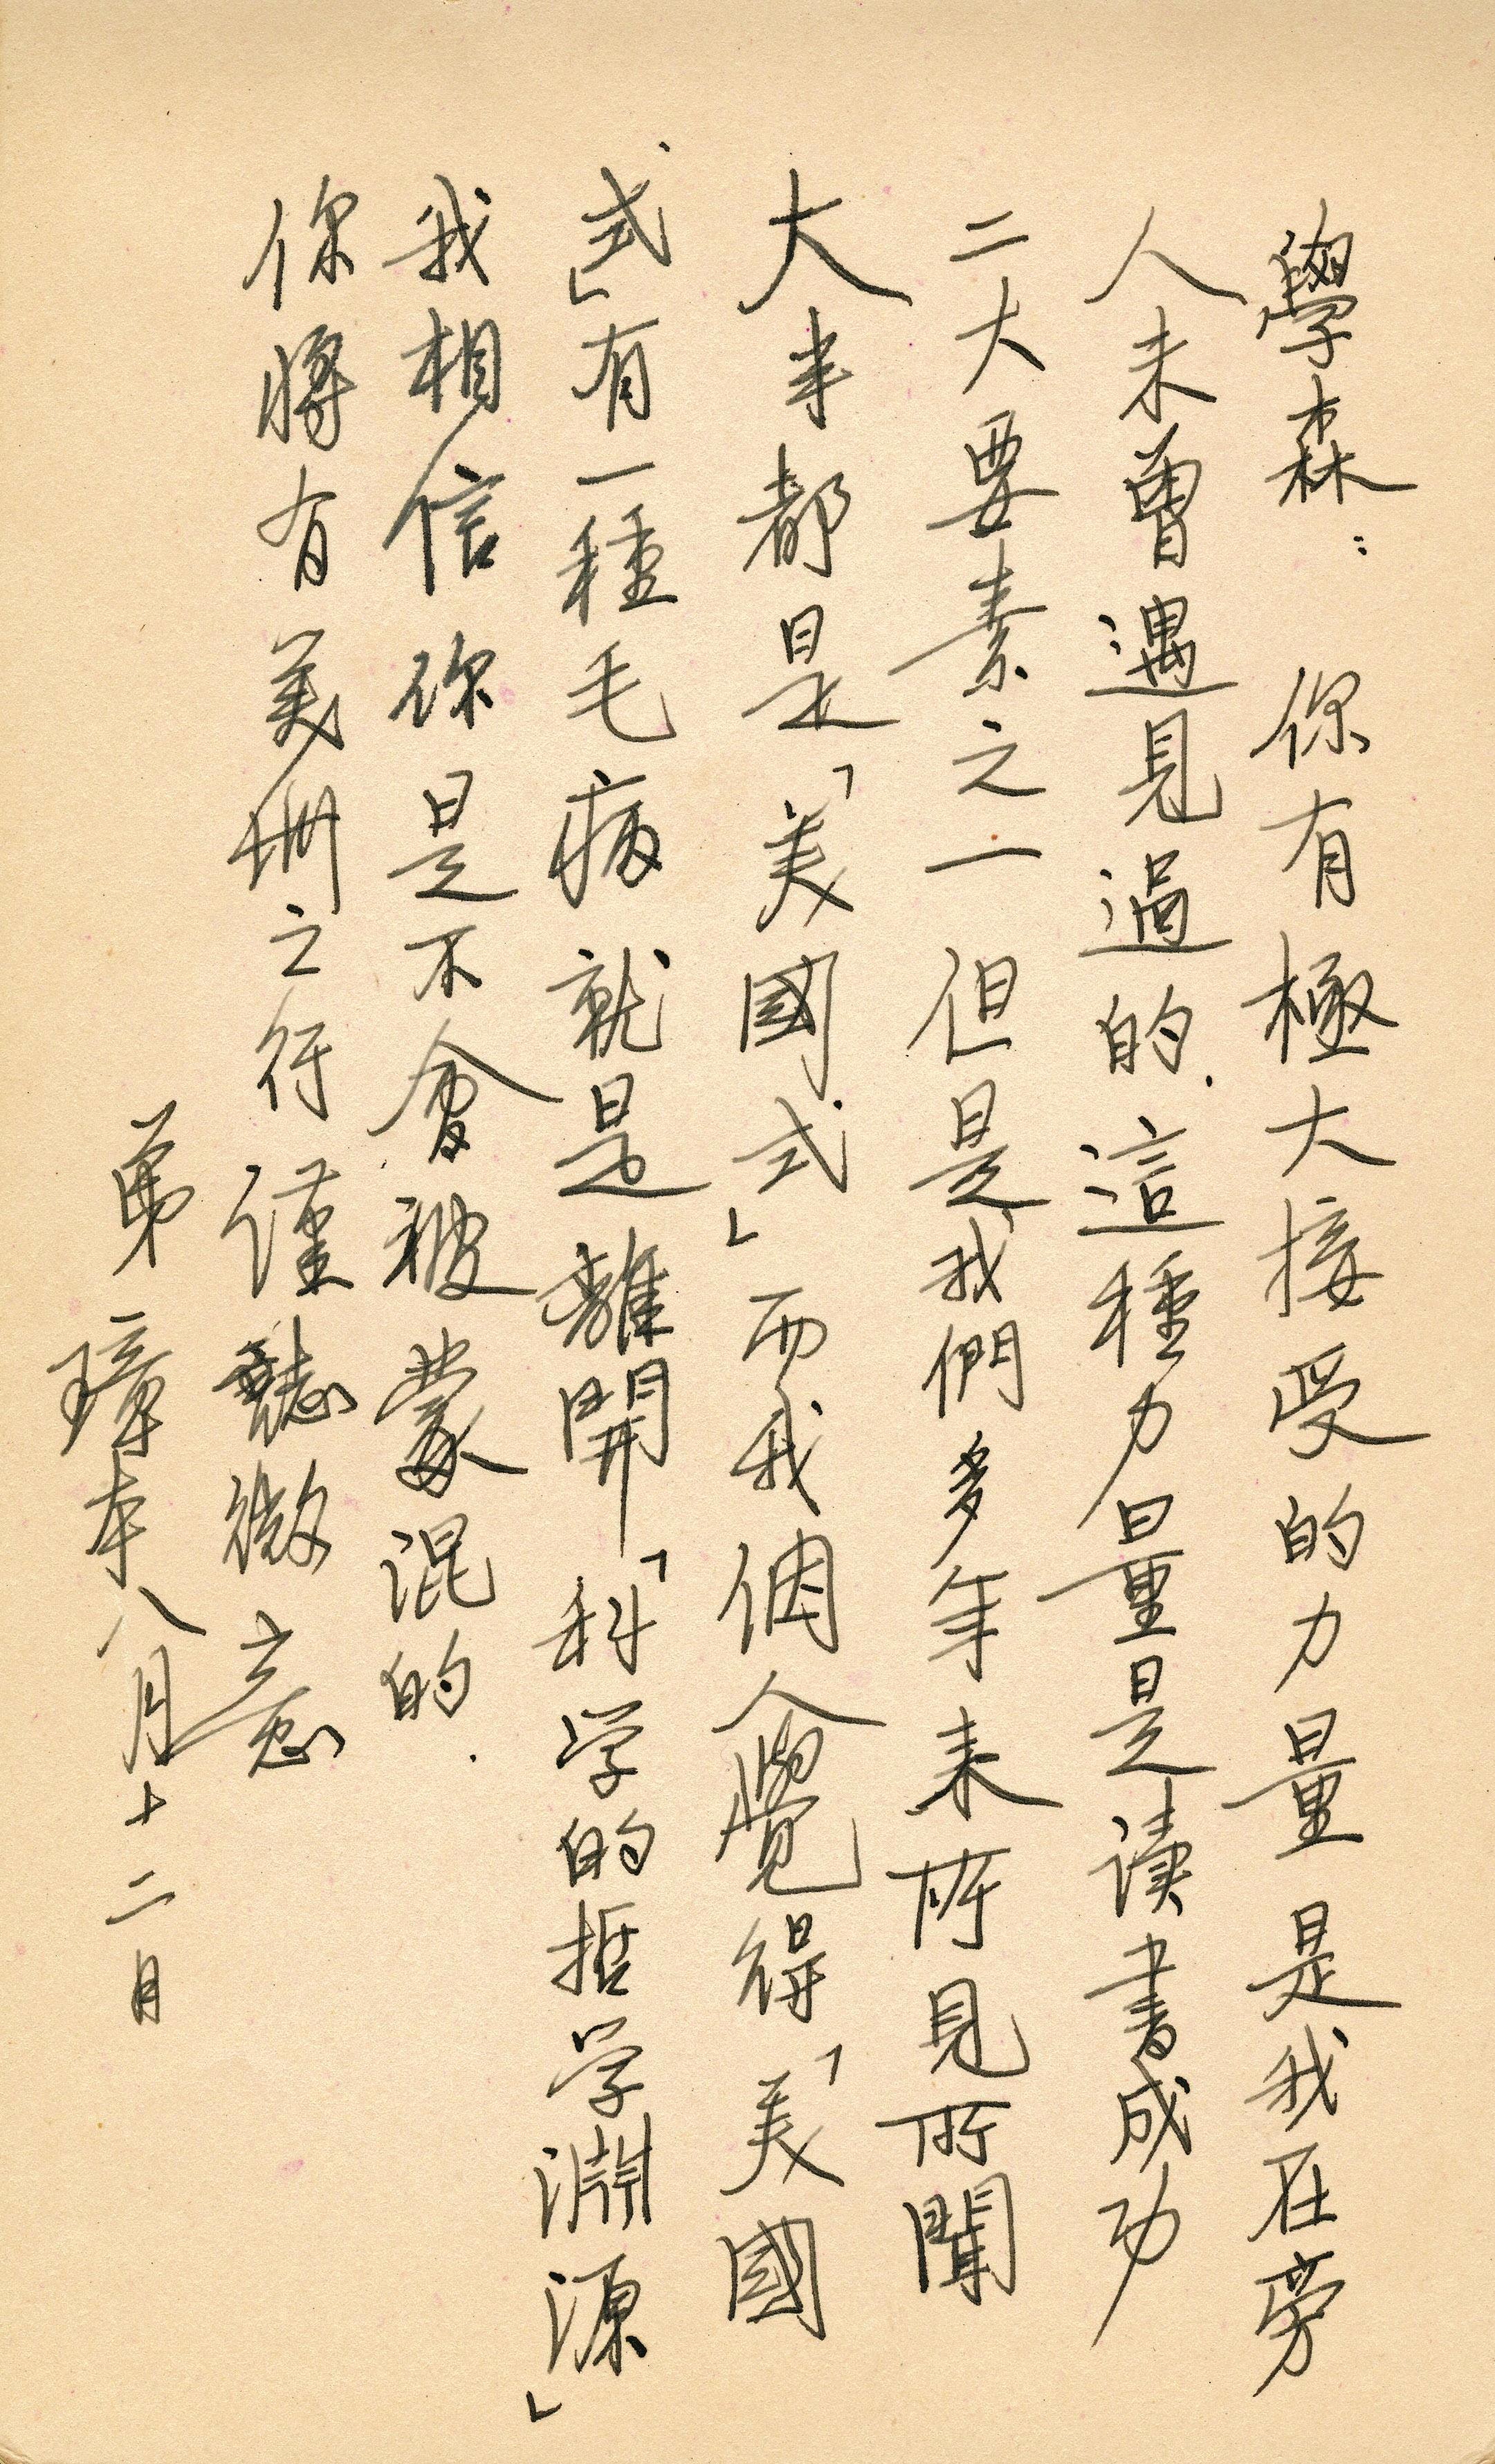 學森：你有極大接受的力量是我在旁
人未曾遇見過的．這種力量是读書成功
二大要素之一但是我們多年来所見所聞
大半都是「美國式」而我個人覺得「美國
式」有一種毛病就是離開「科学的哲学淵源」
我相信你是不会被蒙混的．
你將有美洲之行谨誌微意
弟 璋本八月十二日